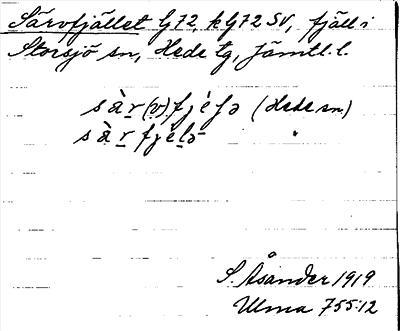 Särvfjället G72, k G72 SV, fjäll i
Storsjö sn, Hede tg, Jämtl. l.
sàr(v)fjélə (Hede sn)
sàrfjèlə "
S. Åsander 1919
Ulma 755:12